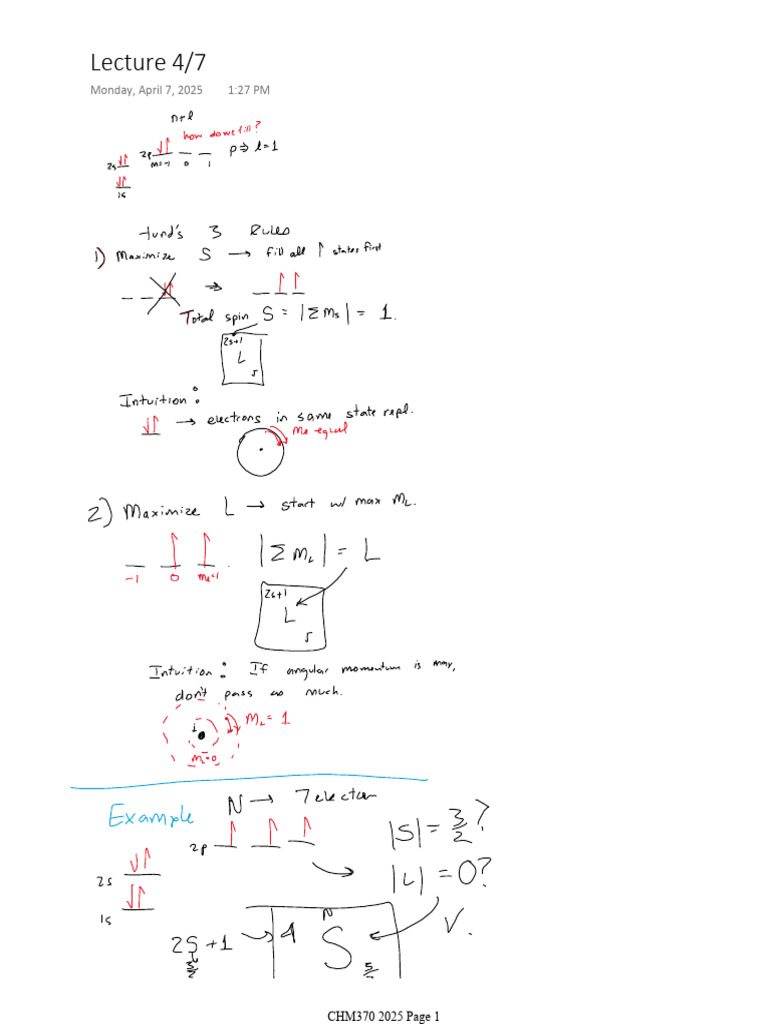 Lecture 4/7
Monday, April 7, 2025 1:27 PM
n+l
how do we fill?
2p
2s
m=-1 0 1
p⇒ l=1
1s
Hund's 3 Rules
1) Maximize S → fill all ↑ states first
Total spin S = |Σ ms| = 1.
2s+1
L
J
Intuition:
→ electrons in same state repl.
mₗ equal
2) Maximize L → start w/ max mL.
-1 0 mₗ=1
|Σ mL| = L
2s+1
L
J
Intuition: If angular momentum is max,
don't pass as much.
mL = 1
mL=0
Example
N → 7 electron
2p
|S| = 3/2?
2s
|L| = 0?
1s
√.
2S+1
3/2
4
N
S
CHM370 2025 Page 1